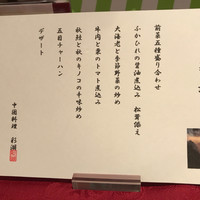 前菜五種盛り合わせ
ふかひれの醤油煮込み 松茸添え
大海老と季節野菜の炒め
牛肉と栗のトマト煮込み
秋鮭と秋のキノコの辛味炒め
五目チャーハン
デザート
中國料理 彩湖